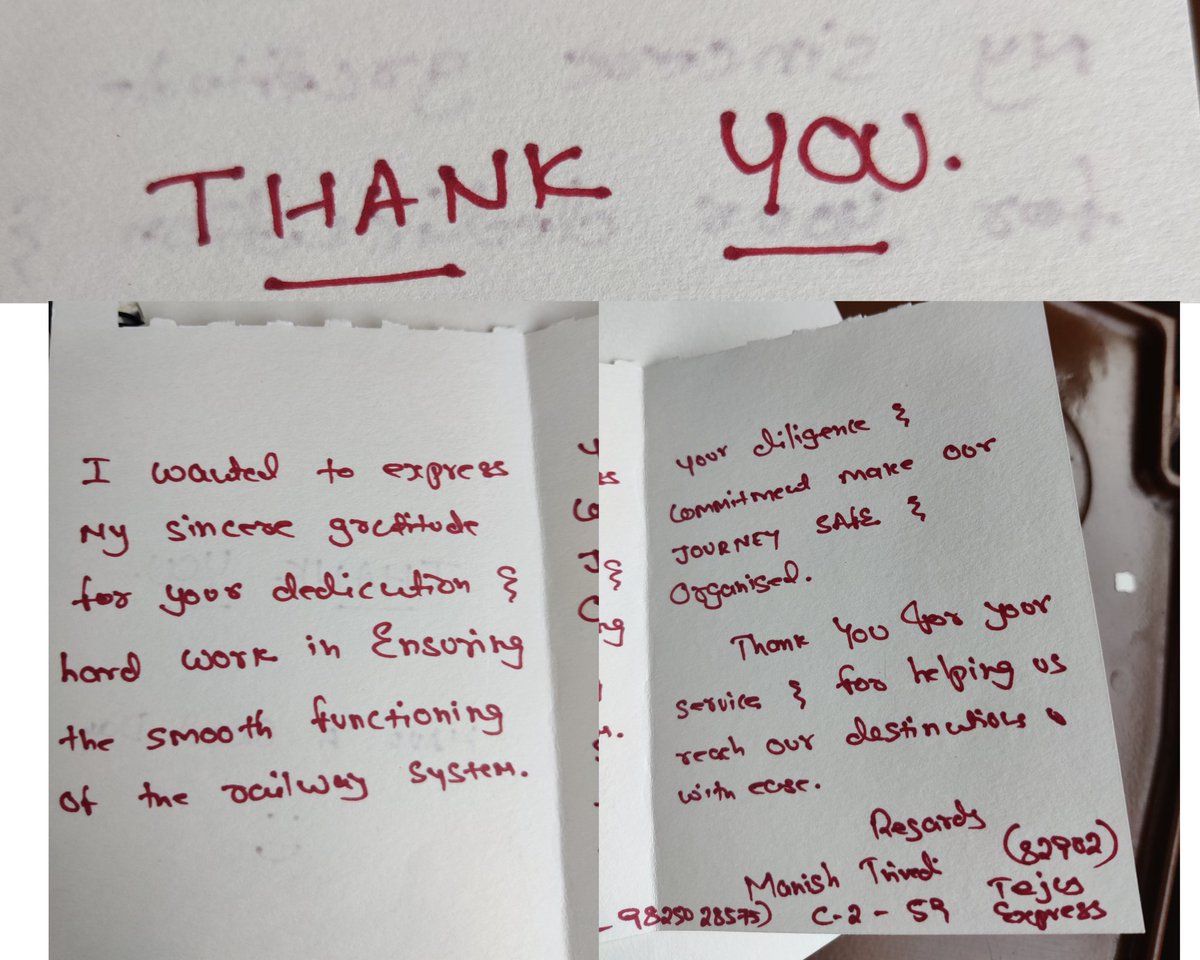 THANK YOU.
I wanted to express
My sincere gratitude
for your dedication &
hard work in Ensuring
the smooth functioning
of the railway system.
your diligence &
commitment make our
JOURNEY SAFE &
Organised.
Thank You for your
service & for helping us
reach our destinations
with ease.
Regards
Manish Trivedi (82902)
Tejas
9825028575) C-2-59 Express